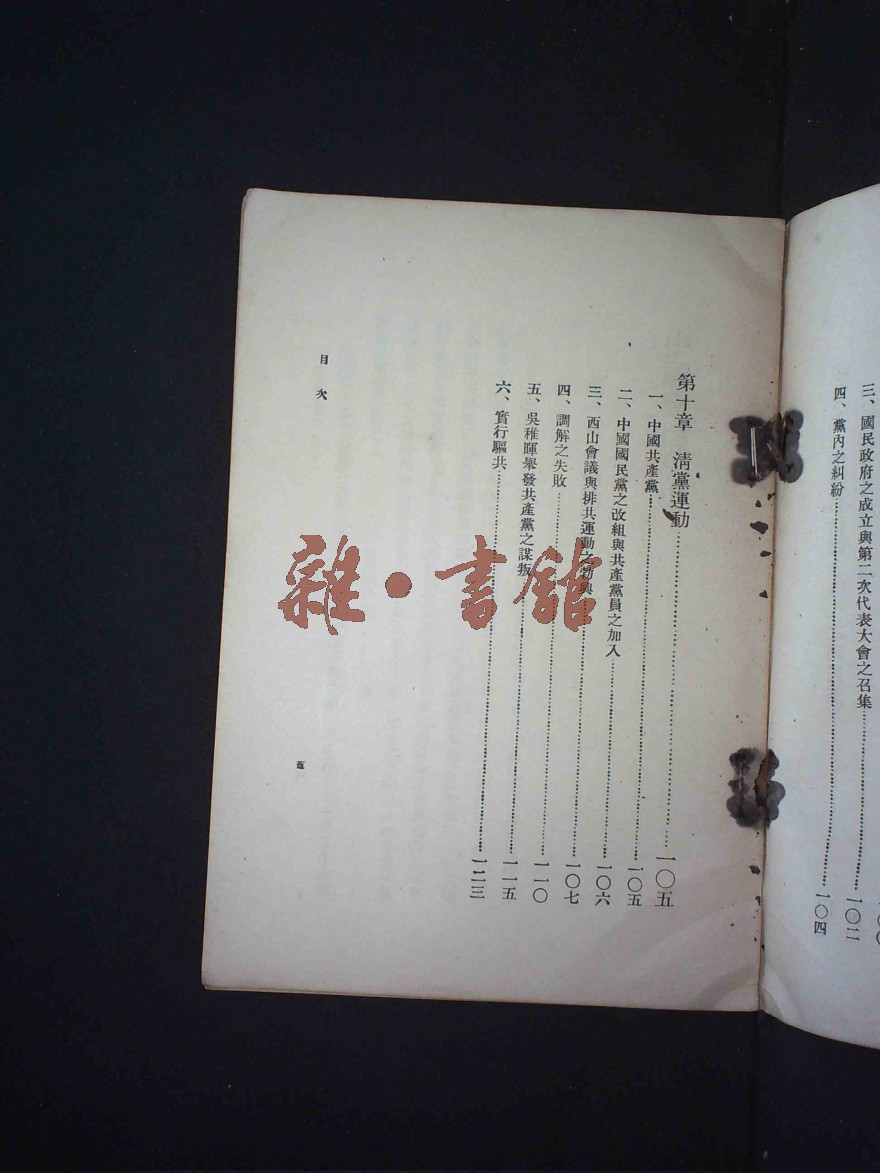 三、國民政府之成立與第二次代表大會之召集……一〇二
四、黨內之糾紛……一〇四
第十章　淸黨運動……一〇五
一、中國共產黨……一〇五
二、中國國民黨之改組與共產黨員之加入……一〇六
三、西山會議與排共運動之勃興……一〇七
四、調解之失敗……一一〇
五、吳稚暉舉發共產黨之謀叛……一一五
六、實行驅共……一二三
目次
五
雜·書館